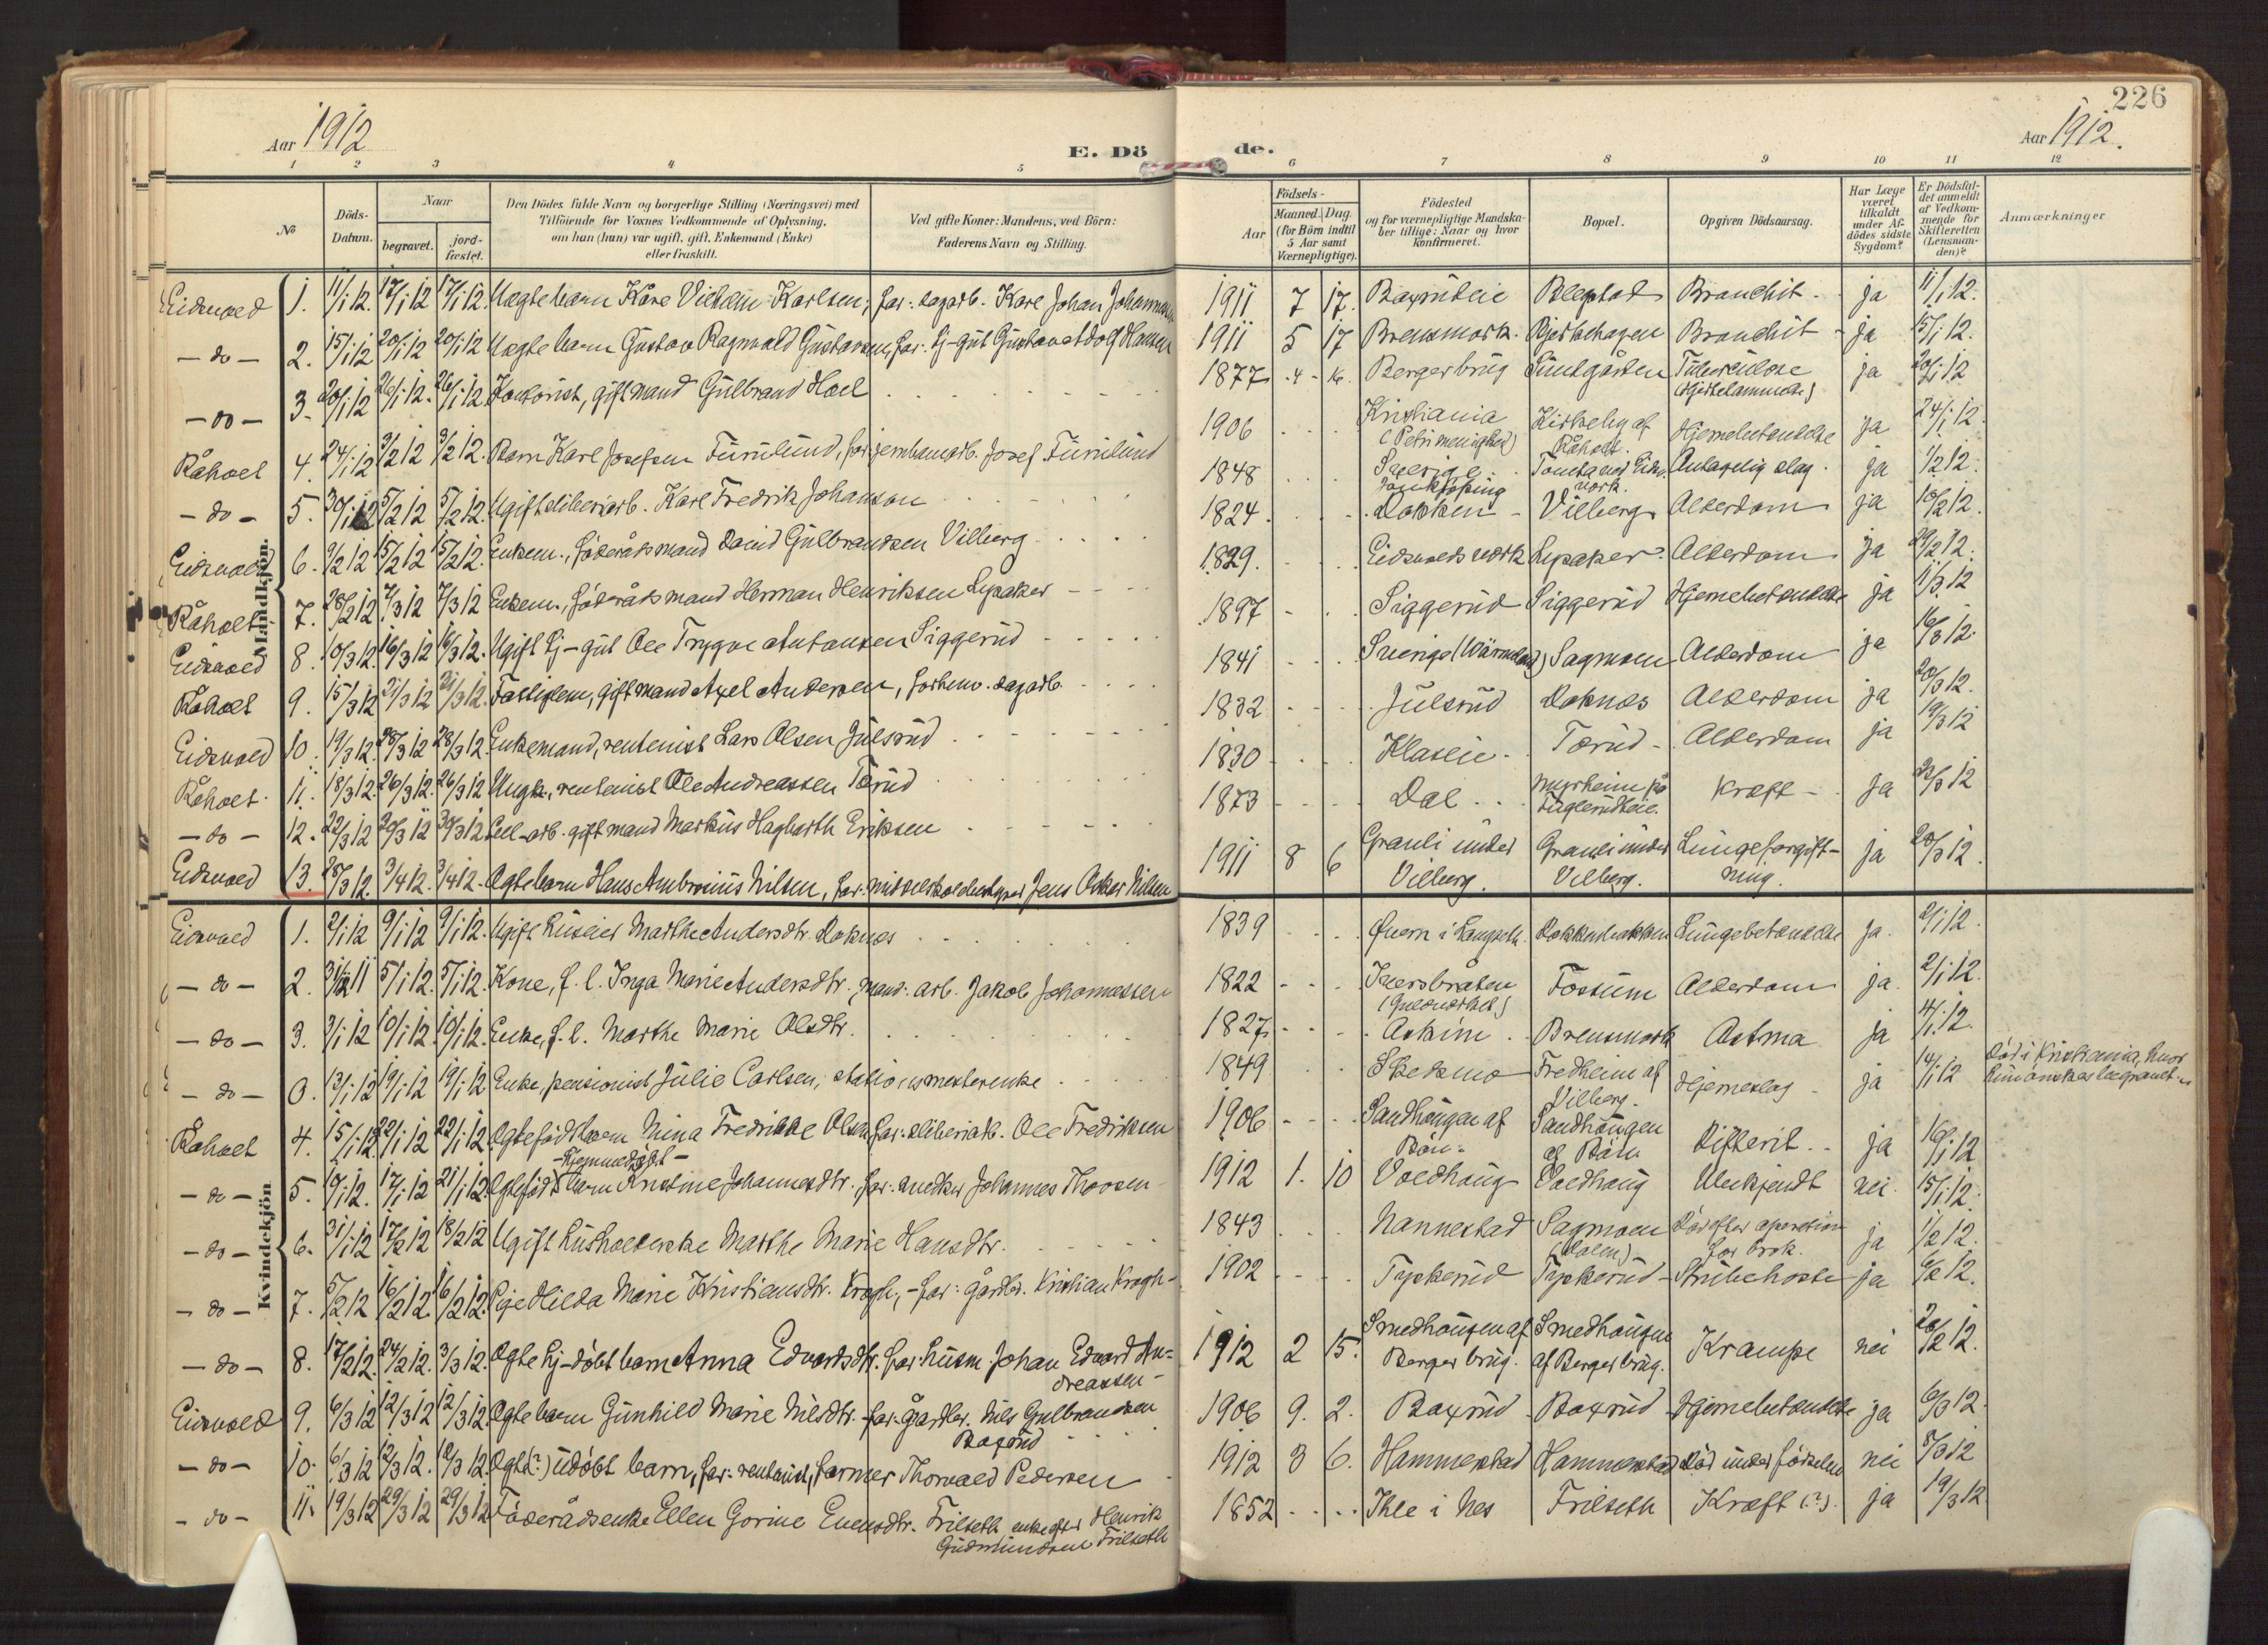 226
Aar 1912
E. Döde.
Aar 1912.
1 2 3 4 5 6 7 8 9 10 11 12
No
Döds-Datum.
Naar
begravet.
jord-fæstet.
Den Dödes fulde Navn og borgerlige Stilling (Næringsvei) med
Tilföiende for Voxnes Vedkommende af Oplysning,
om han (hun) var ugift, gift, Enkemand (Enke)
eller fraskilt.
Ved gifte Koner: Mandens, ved Börn:
Faderens Navn og Stilling.
Aar
Födsels-
Maaned. Dag
(for Börn indtil
5 Aar samt
Værnepligtige).
Födested
og for værnepligtige Mandska-
ber tillige: Naar og hvor
konfirmeret.
Bopæl.
Opgiven Dödsaarsag.
Har Læge
været
tilkaldt
under Af-
dödes sidste
Sygdom?
Er Dödsfal-
det anmeldt
af Vedkom-
mende for
Skifteretten
(Lensman-
den)?
Anmærkninger
Mandkjön.
Eidsvold 1. 11/1 12. 17/1 12 17/1 12. Uægte barn Kåre Vilhelm Karlsen; far: dagarb. Karl Johan Johannessen 1911 7 17. Bronchit - ja 11/1 12.
- do - 2. 15/1 12 20/1 12 20/1 12 Uægte barn Gustav Ragnvald Gustavsen, far: Gustav Adolf Hansen 1911 5 17 Brensmork. Bjerkehagen Bronchit - ja 15/1 12.
- do - 3. 20/1 12 26/1 12. 26/1 12. Kontorist, gift mand Gulbrand Hoel 1877 4 16. Bergerbrug Sundgården Tuberkulose ja 20/1 12
Råholt 4. 24/1 12 3/2 12 3/2 12. Barn Karl Josefsen Furulund, far: jernbanearb. Josef Furulund 1906 Kristiania (Petri menighed) Kirkeby af Råholt. Hjernebetændelse ja 24/1 12.
- do - 5. 30/1 12 5/2 12 5/2 12. Ugift sliberiarb. Karl Fredrik Johanson 1848 Sverige Jönköping Antagelig slag. ja 1/2 12.
Eidsvold 6. 9/2 12 15/2 12 15/2 12. Enkem., föderådsmand David Gulbrandsen Vilberg 1824. Dokken - Vilberg Alderdom ja 10/2 12.
Råholt 7. 28/2 12 7/3 12 7/3 12 Enkem., föderådsmand Herman Henriksen Lysaker 1829. Eidsvolds værk Lysaker Alderdom ja 29/2 12.
Eidsvold 8. 10/3 12. 16/3 12 16/3 12. Ugift Ole Trygve Antonsen Siggerud 1897 Siggerud Siggerud Hjernebetændelse ja 11/3 12
Råholt 9. 15/3 12 21/3 12 21/3 12. Fattiglem, gift mand Axel Andersen, forhenv. dagarb. 1841 Sverige (Wärmland) Sagmoen Alderdom ja 16/3 12.
Eidsvold 10. 19/3 12. 28/3 12 28/3 12. Enkemand, rentenist Lars Olsen Julsrud 1832 Julsrud Doknes Alderdom ja 20/3 12.
Råholt. 11. 18/3 12. 26/3 12. 26/3 12 Ungk., rentenist Ole Andreassen Torud 1830 Klaseie Torud - Alderdom ja 19/3 12
- do - 12. 22/3 12 30/3 12 30/3 12. Cell-arb. gift mand Markus Hagbarth Eriksen 1873 Dal Myrheim på Fuglerudeie. Kræft - ja 22/3 12
Eidsvold 13. 28/3 12. 3/4 12. 3/4 12. Ægte barn Hans Ambrosius Nilsen, far: Jens Oskar Nilsen 1911 8 6 Granli under Vilberg. Granli under Vilberg. Lungeforgiftning. ja 28/3 12.
Kvindekjön
Eidsvold 1. 2/1 12 9/1 12 9/1 12. Ugift Marthe Andersdtr. Doknes 1839 Dokkenbakken Lungebetændelse ja. 2/1 12.
- do - 2. 31/12 11 5/1 12. 5/1 12. Kone, f. l. Inga Marie Andersdtr. Mand: arb. Jakob Johannessen 1822 Fossum Alderdom ja. 2/1 12.
- do - 3. 3/1 12 10/1 12. 10/1 12. Enke, f. l. Marthe Marie Olsdtr. 1827 Askim. Brensmork Astma ja 4/1 12.
- do - 0. 13/1 12 19/1 12 19/1 12 Enke, pensionist Julie Carlsen, stationsmesterenke 1849 Skedsmo Fredheim af Vilberg. Hjerneslag ja 14/1 12 Död i Kristiania, hvor
Råholt 4. 15/1 12 22/1 12 22/1 12. Ægtefödt barn Nina Fredrikke Olsen far: sliberiarb. Ole Fredriksen 1906 Sandhaugen af Bön. Sandhaugen af Bön. Difterit. ja 16/1 12
- do - 5. 10/1 12. 17/1 12 21/1 12. Ægtefödt - Hjemmedöbt - barn Kristine Johannesdtr. far: snedker Johannes Thorsen 1912 1. 10 Voldhaug Voldhaug Ubekjendt nei 15/1 12.
- do - 6. 31/1 12 17/2 12 18/2 12 Ugift husholderske Marthe Marie Hansdtr. 1843 Nannestad Sagmoen (Dalen) - Död efter operation for brok. ja 1/2 12.
- do - 7. 5/2 12 16/2 12. 16/2 12. Pige Hilda Marie Kristiansdtr. Krogh, - far: gårdbr. Kristian Krogh - 1902 Tyskerud Tyskerud - Strubehoste ja 6/2 12.
- do - 8. 17/2 12. 24/2 12. 3/3 12. Ægte hj-döbt barn Anna Edvardsdtr. far: husm. Johan Edvard Andreassen - 1912 2 15. Smedhaugen af Berger brug. Smedhaugen af Berger brug. Krampe nei 20/2 12.
Eidsvold 9. 6/3 12 12/3 12 12/3 12. Ægte barn Gunhild Marie Nilsdtr. - far: Gårdbr. Nils Gulbrandsen Baxrud 1906 9. 2. Baxrud - Baxrud - Hjernebetændelse ja 6/3 12.
- do - 10. 6/3 12 12/3 12. 12/3 12. Ægte(?) udöbt barn, far: rentenist, farmer Thorvald Pedersen 1912 3 6. Hammerstad Hammerstad Död under födselen nei 8/3 12
- do - 11. 19/3 12 29/3 12 29/3 12 Föderådsenke Ellen Gorine Evensdtr. Frilseth enke efter Henrik Gudmundsen Frilseth 1852 Ihle i Nes Frilseth Kræft (?). ja 19/3 12.